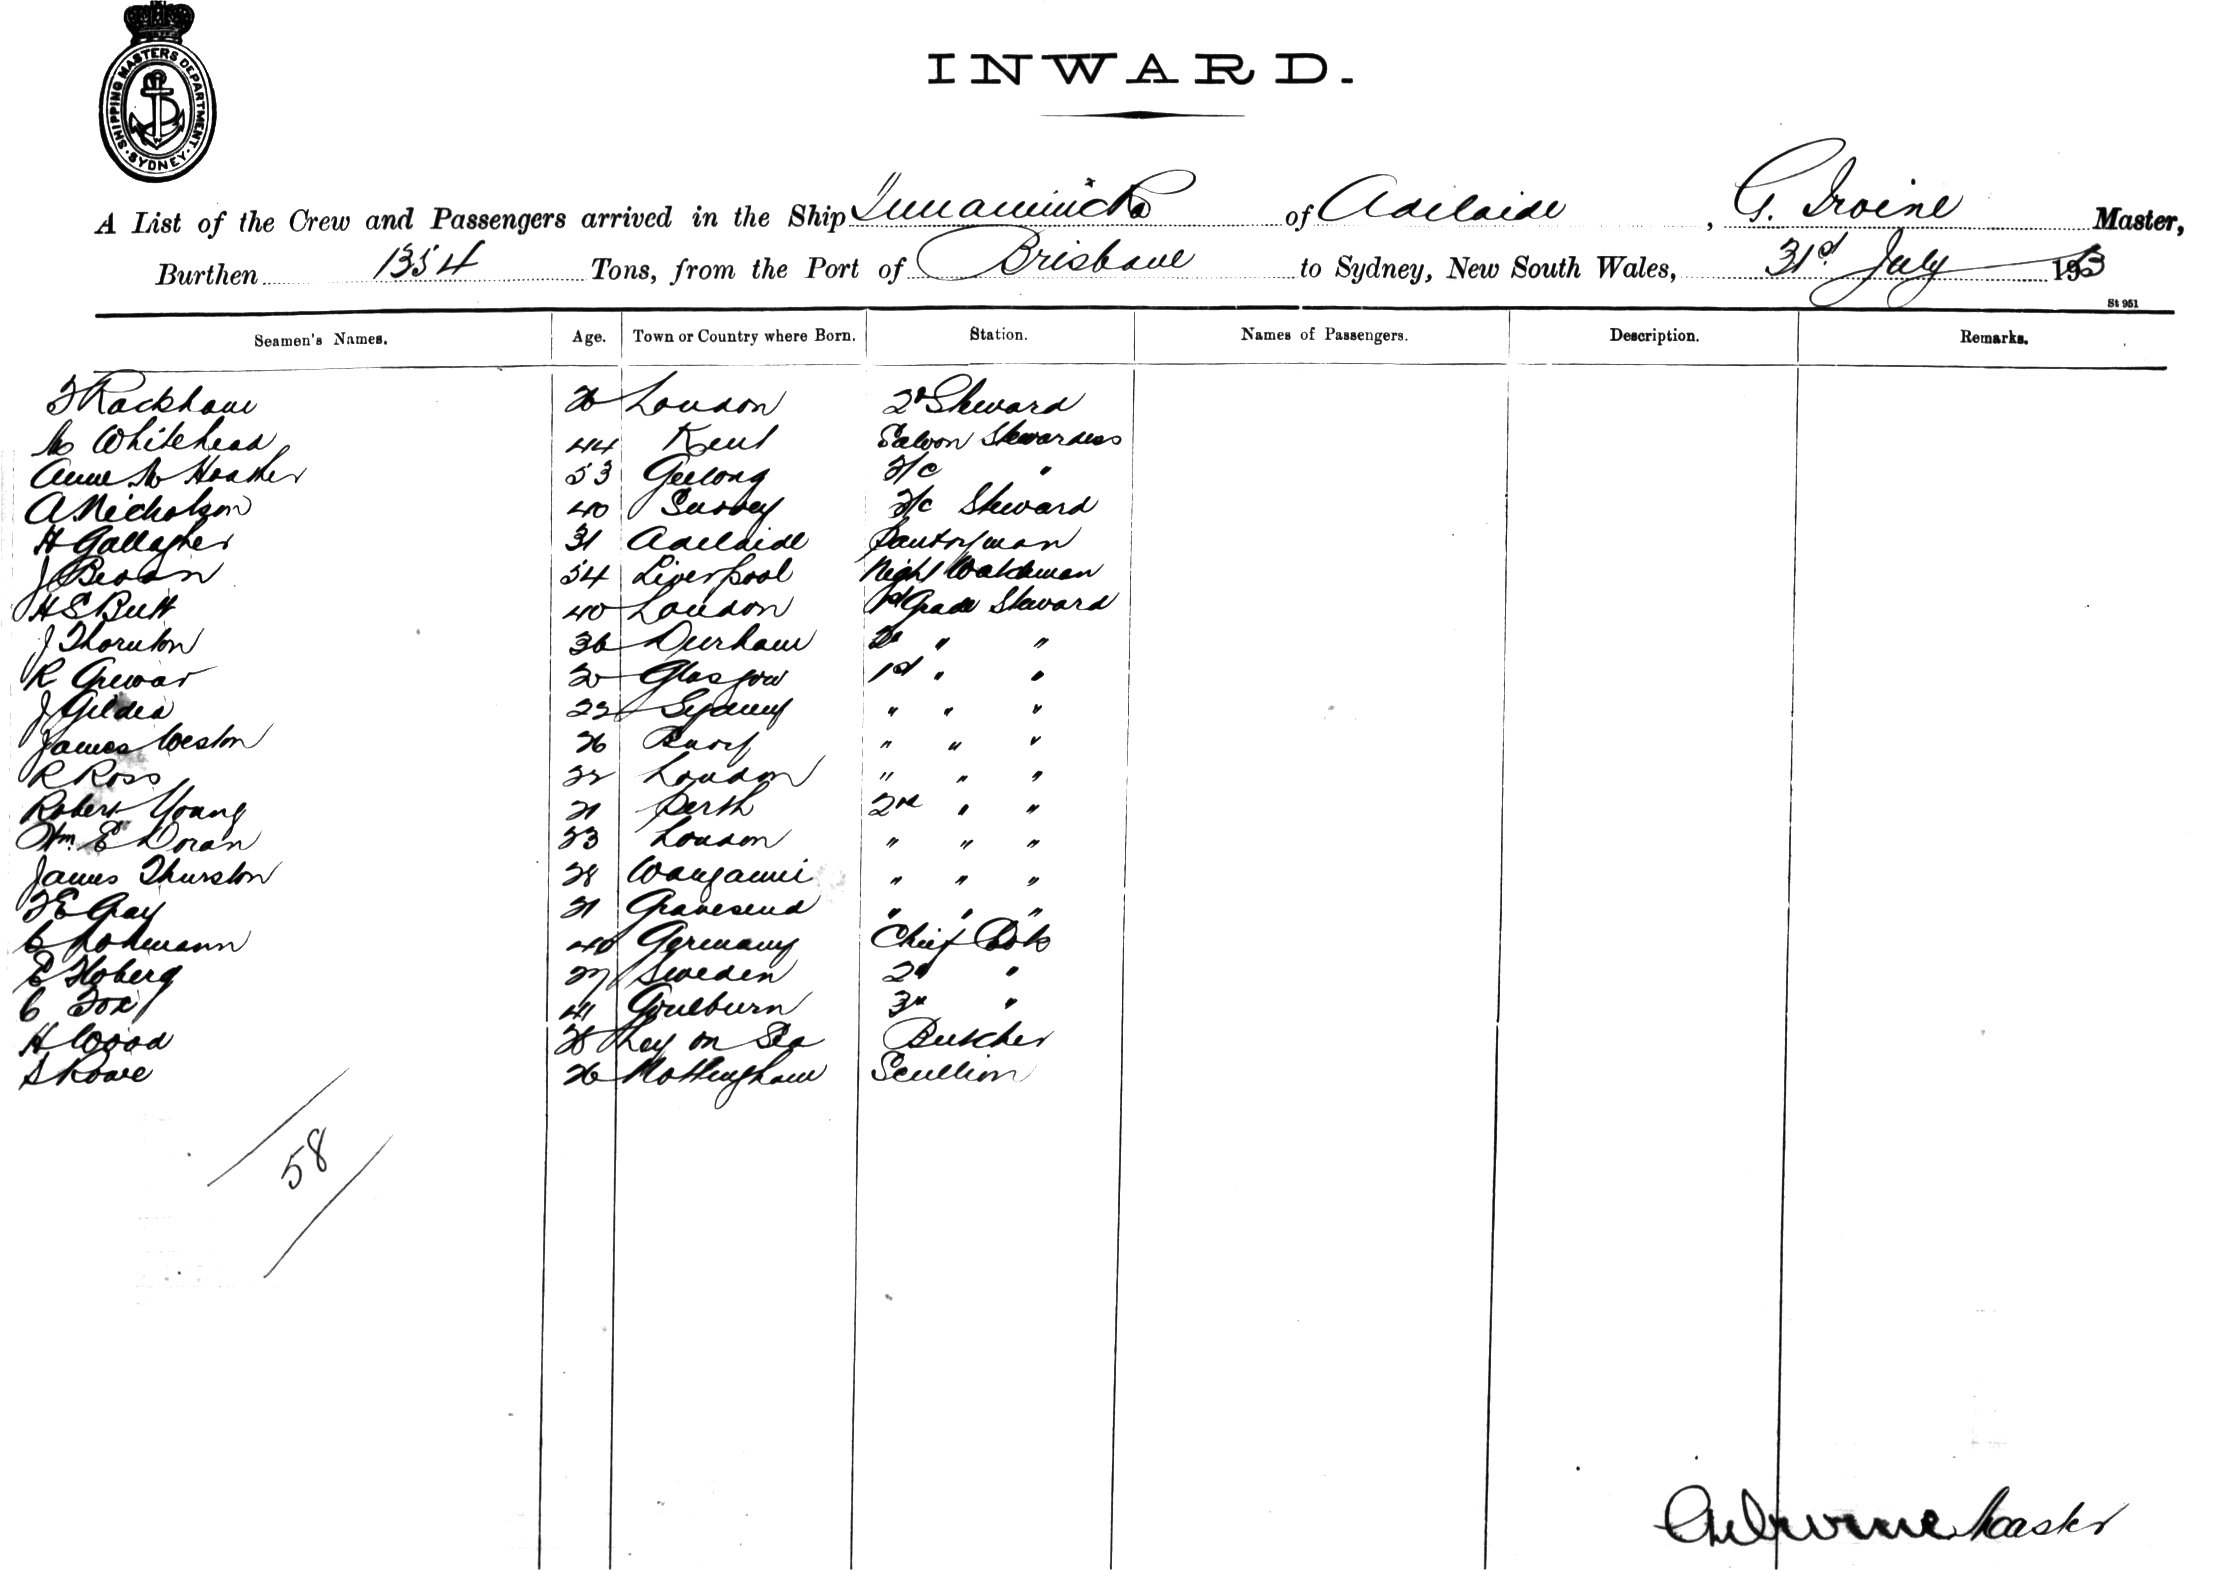 SHIPPING MASTERS DEPARTMENT. SYDNEY.
INWARD.
A List of the Crew and Passengers arrived in the Ship Innamincka of Adelaide, G. Irvine Master,
Burthen 1354 Tons, from the Port of Brisbane to Sydney, New South Wales, 31st July 193
St 951
Seamen's Names. Age. Town or Country where Born. Station. Names of Passengers. Description. Remarks.
F Rackham 26 London 2d Steward
M Whitehead 44 Kent Saloon Stewardess
Anne M Hoather 53 Geelong 2/c "
A Nicholson 40 Surrey 2/c Steward
H Gallagher 31 Adelaide Pantryman
J Bevan 54 Liverpool Night Watchman
H E Butt 40 London 1st Grade Steward
J Thornton 36 Durham 2d " "
R Grewar 20 Glasgow 1st " "
J Gildea 22 Sydney " " "
James Weston 26 " " "
R Ross 22 London " " "
Robert Young 21 Perth 2nd " "
Wm. E Doran 23 London " " "
James Thurston 28 Wanganui " " "
F E Gray 21 Gravesend " " "
C Lohmann 40 Germany Chief Cook
E Hoberg 27 Sweden 2d "
C Fox 41 Goulburn 3rd "
H Wood 28 on Sea Butcher
S Rowe 26 Nottingham Scullion
58
G Irvine Master